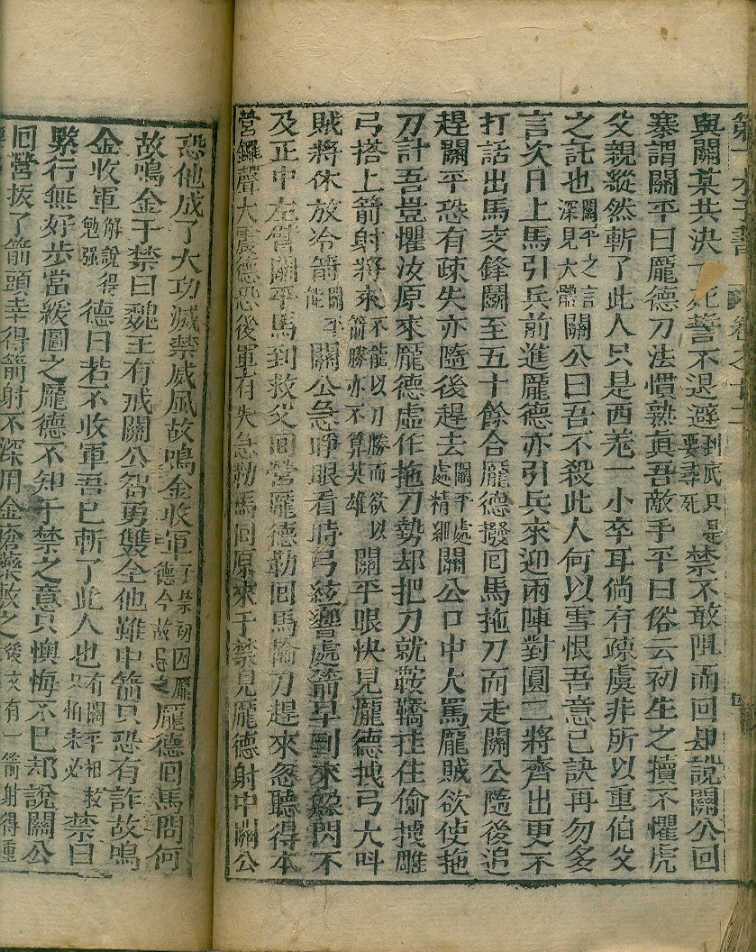 第一才子書 卷之十二 四
與關某共決一死誓不退避到底只是要尋死禁不敢阻而回却說關公回
寨謂關平曰龐德刀法慣熟真吾敵手平曰俗云初生之犢不懼虎
父親縱然斬了此人只是西羌一小卒耳倘有疎虞非所以重伯父
之託也關平之言深見大體關公曰吾不殺此人何以雪恨吾意已訣再勿多
言次日上馬引兵前進龐德亦引兵來迎兩陣對圓二將齊出更不
打話出馬交鋒鬭至五十餘合龐德撥囘馬拖刀而走關公隨後追
趕關平恐有疎失亦隨後趕去關平處處精細關公口中大罵龐賊欲使拖
刀計吾豈懼汝原來龐德虛作拖刀勢却把刀就鞍鞽掛住偷拽雕
弓搭上箭射將來不能以刀勝而欲以箭勝亦不算英雄關平眼快見龐德拽弓大呌
賊將休放冷箭關平能關公急睜眼看時弓絃響處箭早到來躲閃不
及正中左臂關平馬到救父囘營龐德勒囘馬輪刀趕來忽聽得本
營鑼聲大震德恐後軍有失急勒馬囘原來于禁見龐德射中關公
恐他成了大功滅禁威風故鳴金收軍于禁初因龐德今故忌之龐德囘馬問何
故鳴金于禁曰魏王有戒關公智勇雙全他雖中箭只恐有詐故鳴
金收軍解說得勉强德曰若不收軍吾已斬了此人也有關平相救只怕未必禁曰
緊行無好步當緩圖之龐德不知于禁之意只懊悔不已却說關公
囘營拔了箭頭幸得箭射不深用金瘡藥敷之後文有一箭射得重